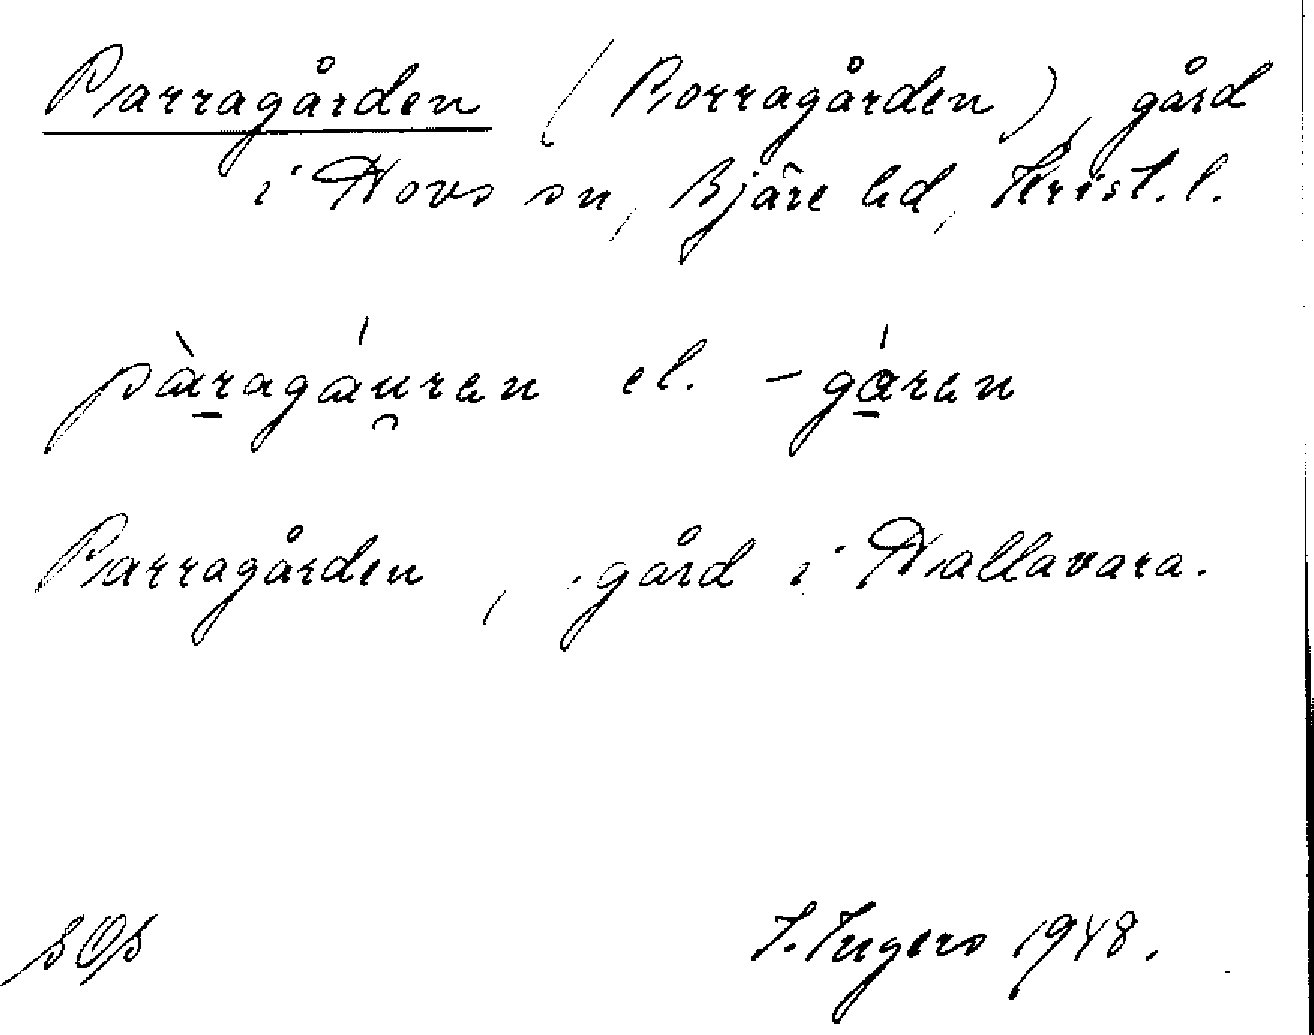 Parragården (Porragården), gård
i Hovs sn, Bjäre hd, Krist. l.
pàragáu̯ren el. -gáren
Parragården, gård i Hallavara.
SOS
I. Ingers 1948.